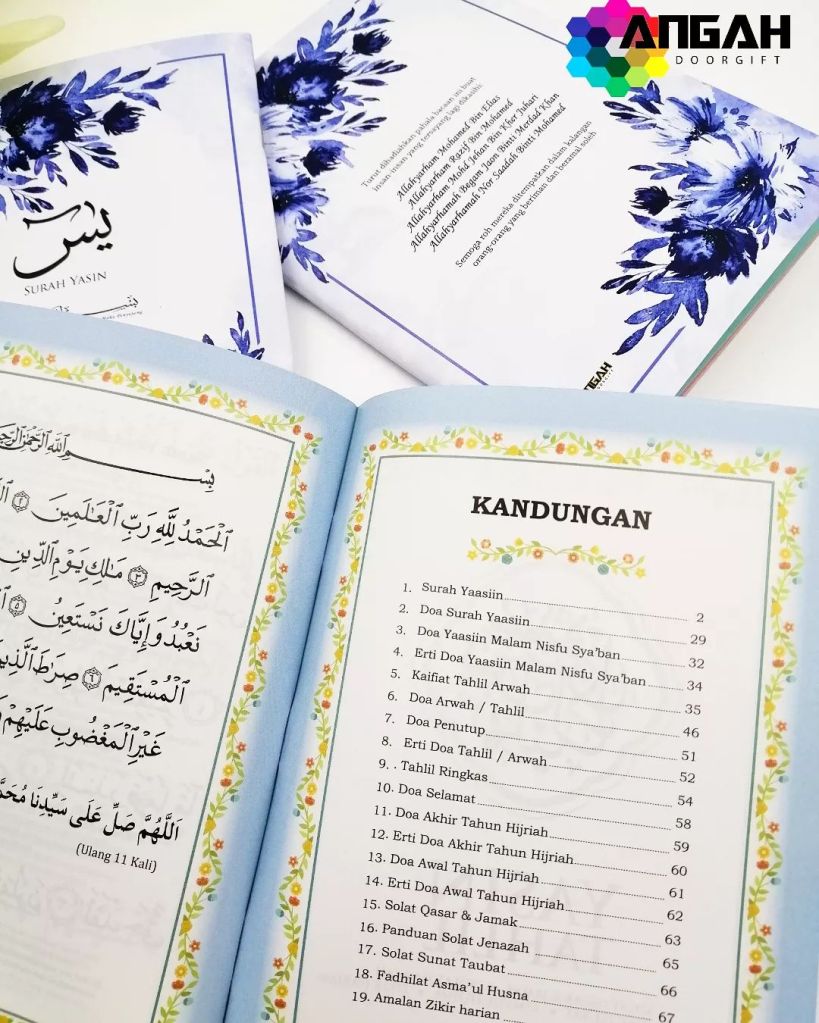 ANGAH
DOORGIFT
Turut dihadiahkan pahala bacaan ini buat
insan-insan yang tersayang lagi dikasihi.
Allahyarham Mohamed Bin Elias
Allahyarham Razif Bin Mohamed
Allahyarham Mohd Jehan Bin Kher Juhari
Allahyarhamah Begam Jaan Binti Merdad Khan
Allahyarhamah Nor Saadah Binti Mohamed
Semoga roh mereka ditempatkan dalam kalangan
orang-orang yang beriman dan beramal soleh
يس
SURAH YASIN
بِسْمِ اللَّهِ الرَّحْمَٰنِ
الْحَمْدُ لِلَّهِ رَبِّ الْعَالَمِينَ ٢
الرَّحِيمِ ٣ مَالِكِ يَوْمِ الدِّينِ
نَعْبُدُ وَإِيَّاكَ نَسْتَعِينُ ٥
الْمُسْتَقِيمَ ٦ صِرَاطَ الَّذِينَ
غَيْرِ الْمَغْضُوبِ عَلَيْهِمْ
اَللَّهُمَّ صَلِّ عَلَى سَيِّدِنَا
(Ulang 11 Kali)
KANDUNGAN
1. Surah Yaasiin 2
2. Doa Surah Yaasiin 29
3. Doa Yaasiin Malam Nisfu Sya'ban 32
4. Erti Doa Yaasiin Malam Nisfu Sya'ban 34
5. Kaifiat Tahlil Arwah 35
6. Doa Arwah / Tahlil 46
7. Doa Penutup 51
8. Erti Doa Tahlil / Arwah 52
9. . Tahlil Ringkas 54
10. Doa Selamat 58
11. Doa Akhir Tahun Hijriah 59
12. Erti Doa Akhir Tahun Hijriah 60
13. Doa Awal Tahun Hijriah 61
14. Erti Doa Awal Tahun Hijriah 62
15. Solat Qasar & Jamak 63
16. Panduan Solat Jenazah 65
17. Solat Sunat Taubat 66
18. Fadhilat Asma'ul Husna 67
19. Amalan Zikir harian